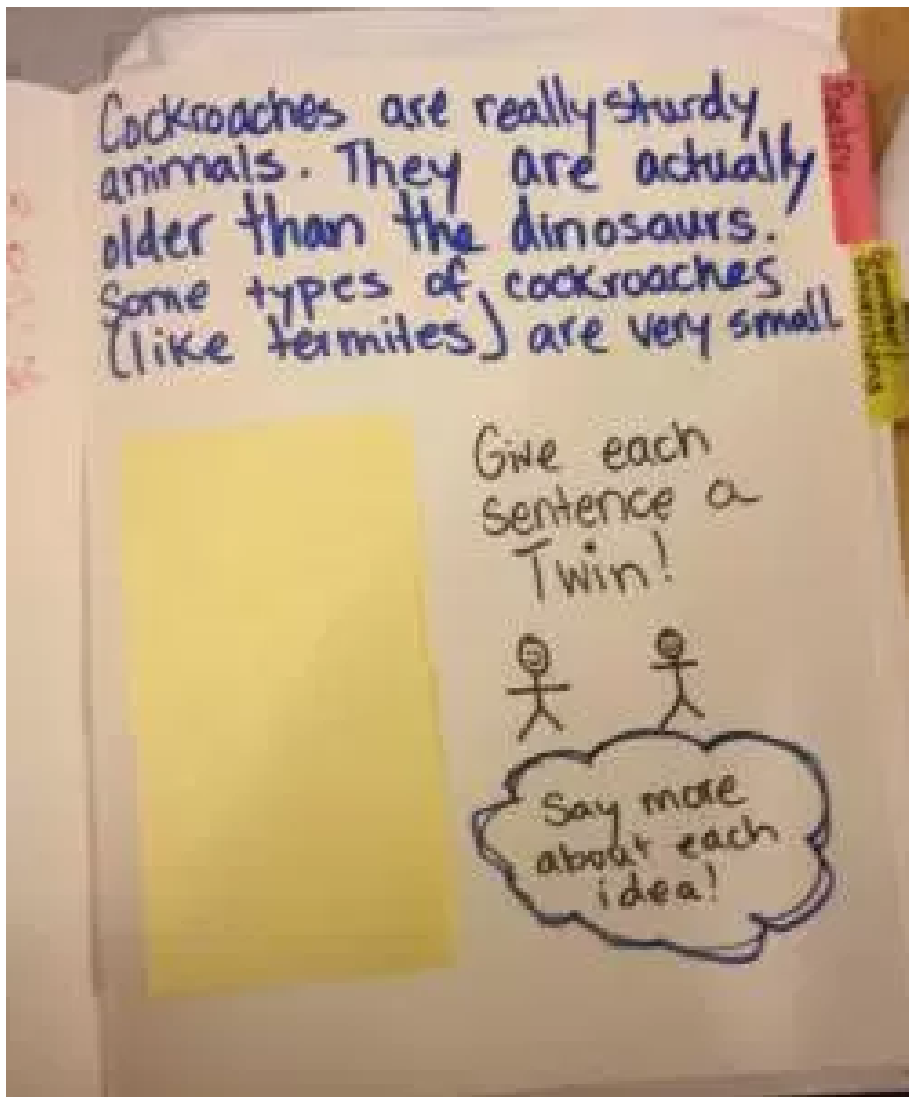 Cockroaches are really sturdy
animals. They are actually
older than the dinosaurs.
Some types of cockroaches
(like termites) are very small
Give each
sentence a
Twin!
Say more
about each
idea!
Poetry